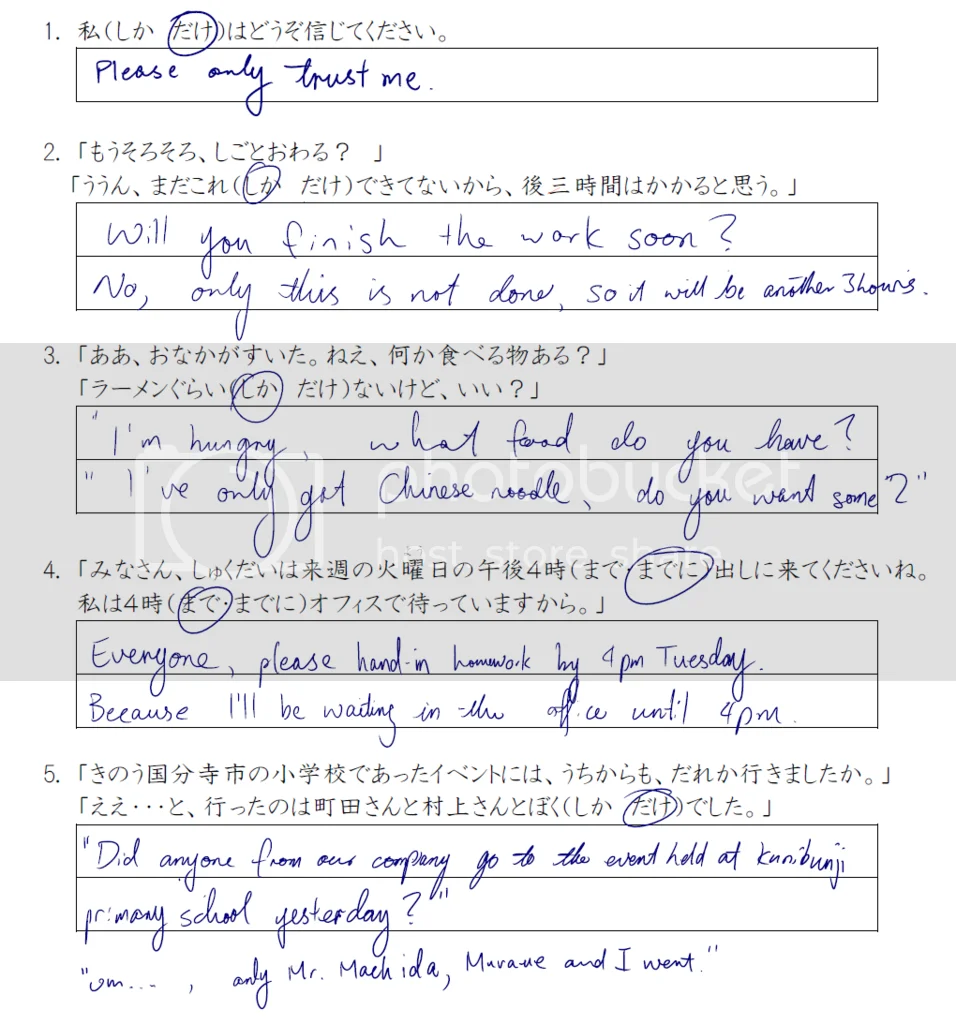 1. 私(しか だけ)はどうぞ信じてください。
Please only trust me.
2. 「もうそろそろ、しごとおわる？ 」
「ううん、まだこれ(しか だけ)できてないから、後三時間はかかると思う。」
Will you finish the work soon?
No, only this is not done, so it will be another 3hours.
3. 「ああ、おなかがすいた。ねえ、何か食べる物ある？」
「ラーメンぐらい(しか だけ)ないけど、いい？」
"I'm hungry, what food do you have?
"I've only got Chinese noodle, do you want some?"
photobucket
host. store. share.
4. 「みなさん、しゅくだいは来週の火曜日の午後4時(まで・までに)出しに来てくださいね。
私は4時(まで・までに)オフィスで待っていますから。」
Everyone, please hand-in homework by 4pm Tuesday.
Because I'll be waiting in the office until 4pm.
5. 「きのう国分寺市の小学校であったイベントには、うちからも、だれか行きましたか。」
「ええ・・・と、行ったのは町田さんと村上さんとぼく(しか だけ)でした。」
"Did anyone from our company go to the event held at Kunibunji
primary school yesterday?"
"um..., only Mr. Machida, and I went."